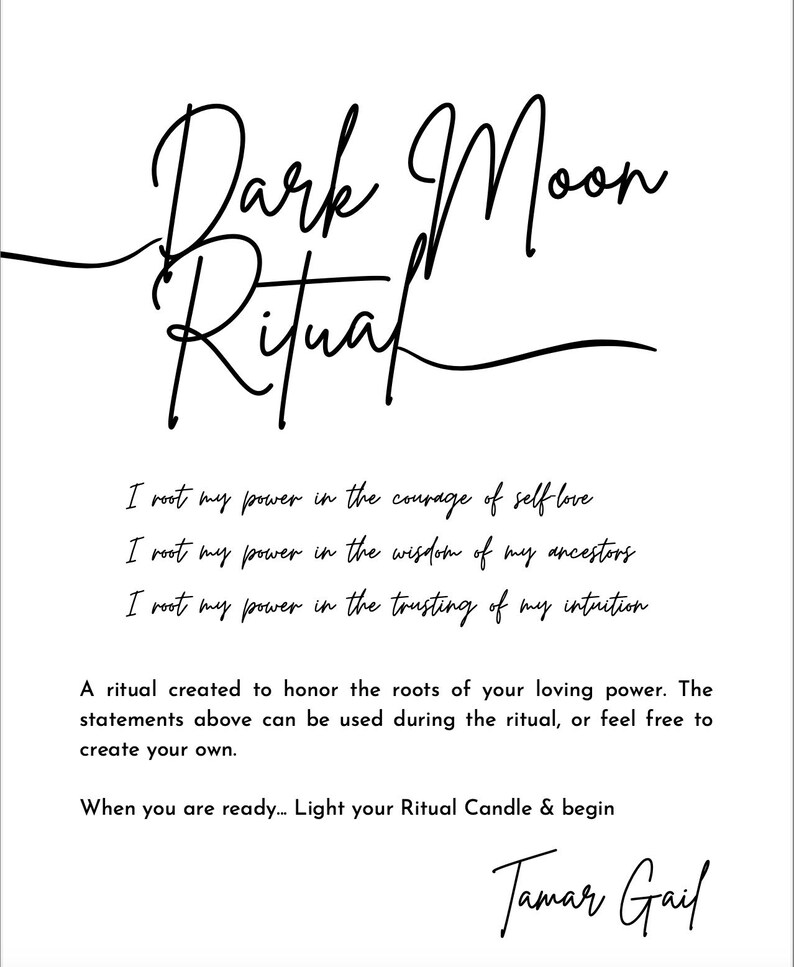 Dark Moon
Ritual
I root my power in the courage of self-love
I root my power in the wisdom of my ancestors
I root my power in the trusting of my intuition
A ritual created to honor the roots of your loving power. The
statements above can be used during the ritual, or feel free to
create your own.
When you are ready... Light your Ritual Candle & begin
Tamar Gail